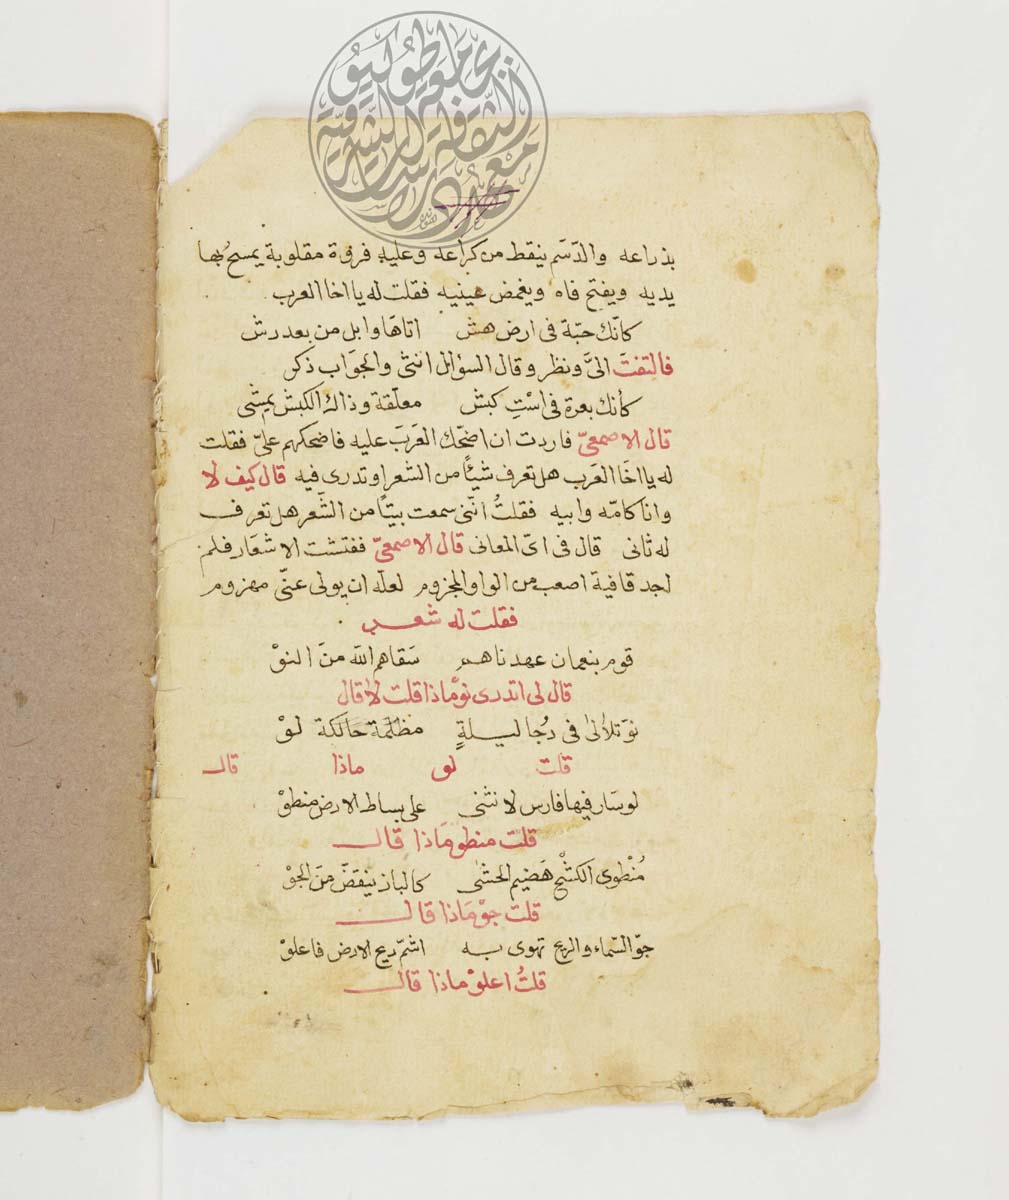 جامعة طوكيو
معهد الثقافة والدراسات الشرقية
بذراعه والدّسَم ينقط من كراعه وعليه فروة مقلوبة يمسح بها
يديه ويفتح فاه ويغمض عينيه فقلت له يا اخا العرب
كانّك حبّة فى ارض هش اتاهَا وابل من بعد رش
فالتفتَ الىَّ ونظر وقال السؤال انثى والجوَاب ذكر
كأنك بعرة فى استِ كبش معلّقة وذاك الكبش يمشى
قال الاصمعىّ فاردت ان اضحّك العَربَ عليه فاضحكهم علىّ فقلت
له يا اخَا العَرب هل تعرف شيئًا من الشعر او تدرى فيه قال كيف لا
وانا كامّه وابيه فقلتُ انّنى سمعت بيتًا من الشّعر هل تعرف
له ثانى قال فى اىّ المعانى قال الاصمعىّ ففتشت الاشعَار فلم
اجد قافية اصعب من الواو المجزوم لعلّه ان يولى عنّى مهزوم
فقلت له شعر
قوم بنعمان عهدناهم سَقاهم الله منَ النوْ
قال لى اتدرى نوْ ماذا قلت لا قال
نوَ تلالىٰ فى دُجا ليلةٍ مظلمة حَالكة لوْ
قلت لو ماذا قال
لو سَار فيها فارس لانثنى على بساط الارض منطوْ
قلت منطو مَاذا قال
مُنْطوى الكشْح هَضيم الحشىٰ كالباز ينقضّ منَ الجوْ
قلت جوْ مَاذا قال
جوّ السّماء والريح تهوى به اشتمّ ريح الارض فاعلوْ
قلتُ اعلوْ ماذا قال